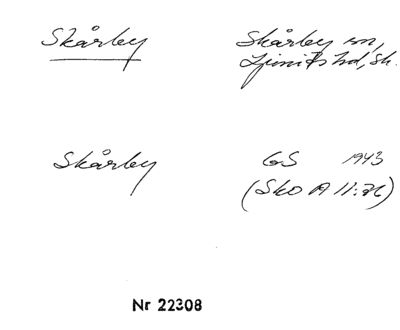 Skårby
Skårby sn,
Ljunits hd, Sk.
Skårby
GS 1943
(Sko A 11:26)
Nr 22308